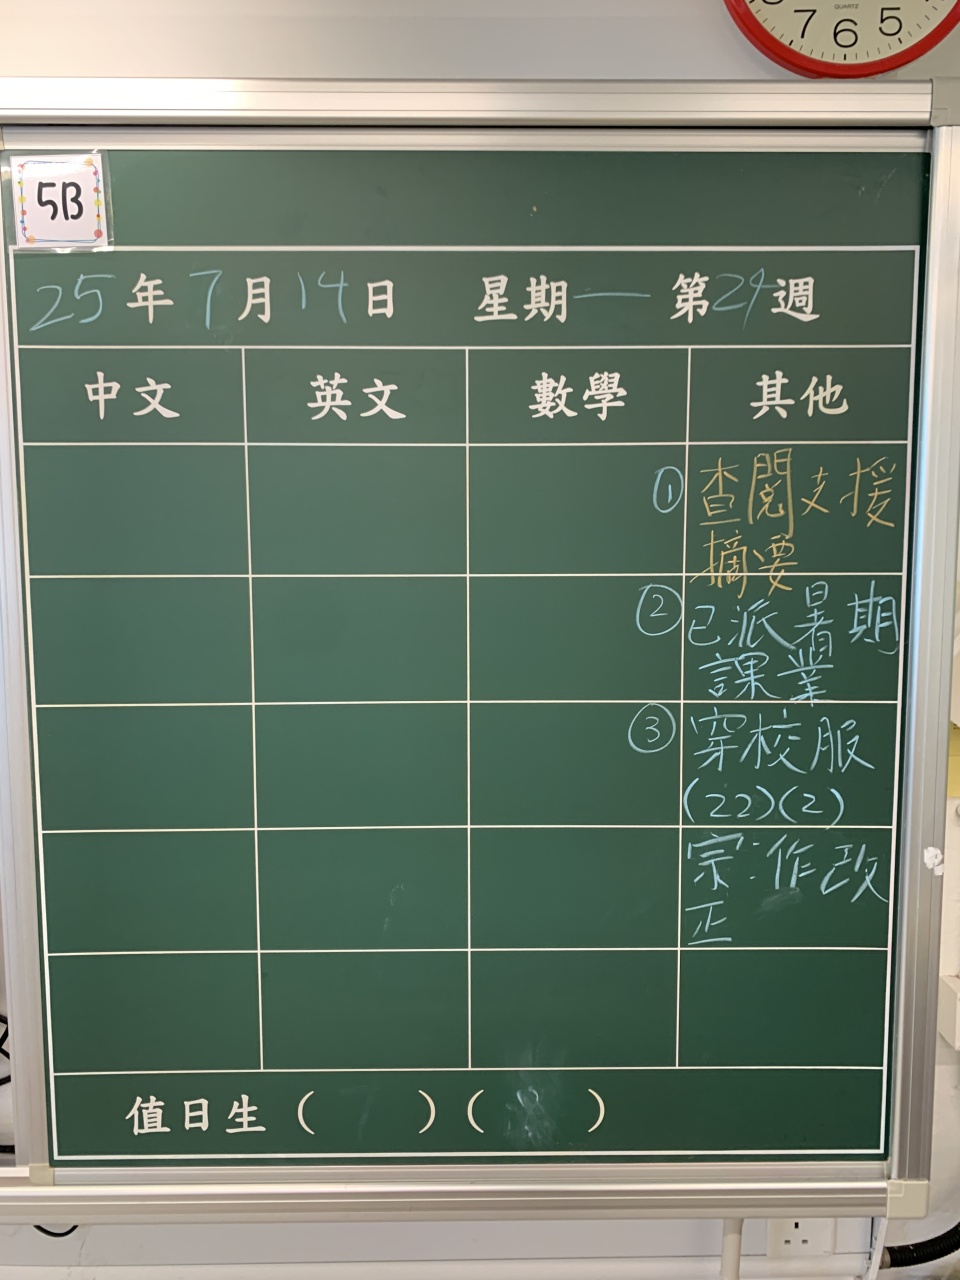 7 6 5
QUARTZ
5B
25年7月14日 星期一 第24週
中文 英文 數學 其他
① 查閱支援
摘要
② 已派暑期
課業
③ 穿校服
(22)(2)
宗:作改
正
值日生( )( )